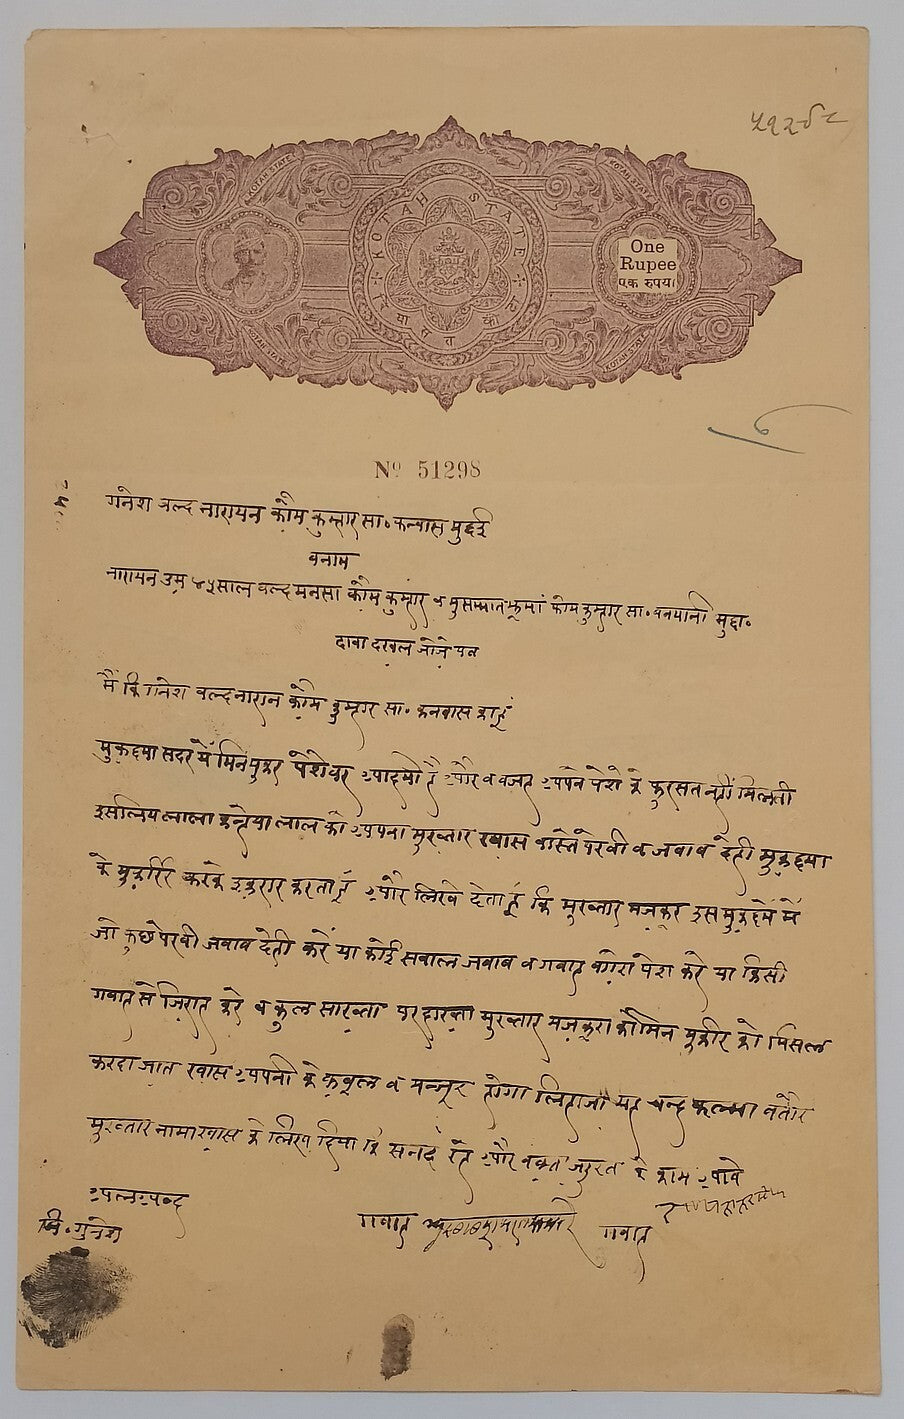 ५१२९८
KOTAH STATE
KOTAH STATE
KOTAH STATE
One
Rupee
एक रुपया
KOTAH STATE
KOTAH STATE
No 51298
गनेश वल्द नारायन कौम कुम्हार सा॰ कनवास मुद्दई
बनाम
नारायन उम्र ४५ साल वल्द मनसा कौम कुम्हार व मुसम्मात कौम कुम्हार सा॰ मुद्दा॰
दावा दखल
मैं कि गनेश वल्द नारान कौम कुम्हार सा॰ कनवास का हूं
मुकद्दमा सदर में मिनमुकर पेशेवर आदमी है और व वजह अपने पेशे के फुरसत नहीं मिलती
इसलिय लाला कन्हैया लाल को अपना मुख्तार खास वास्ते पेरवी व जवाब देही मुकद्दमा
के मुकर्रिर करके इकरार करता हूं और लिखे देता हूं कि मुख्तार मजकूर इस मुकद्दमें में
जो कुछ पेरवी जवाब देही करें या कोई सवाल जवाब व गवाह वगेरा पेश करे या किसी
गवाह से जिराह करे व कुल साख्ता परदाख्ता मुख्तार मजकूरा को मिन मुकीर को मिसल
करदा जात खास अपनी के कबूल व मन्जूर होगा लिहाजा यह चन्द कलमा बतौर
मुख्तार नामा खास के लिख दिया कि सनद रहे और वक्त जरुरत के काम आवे
अलअब्द
नि॰ गनेश
गवाह
गवाह